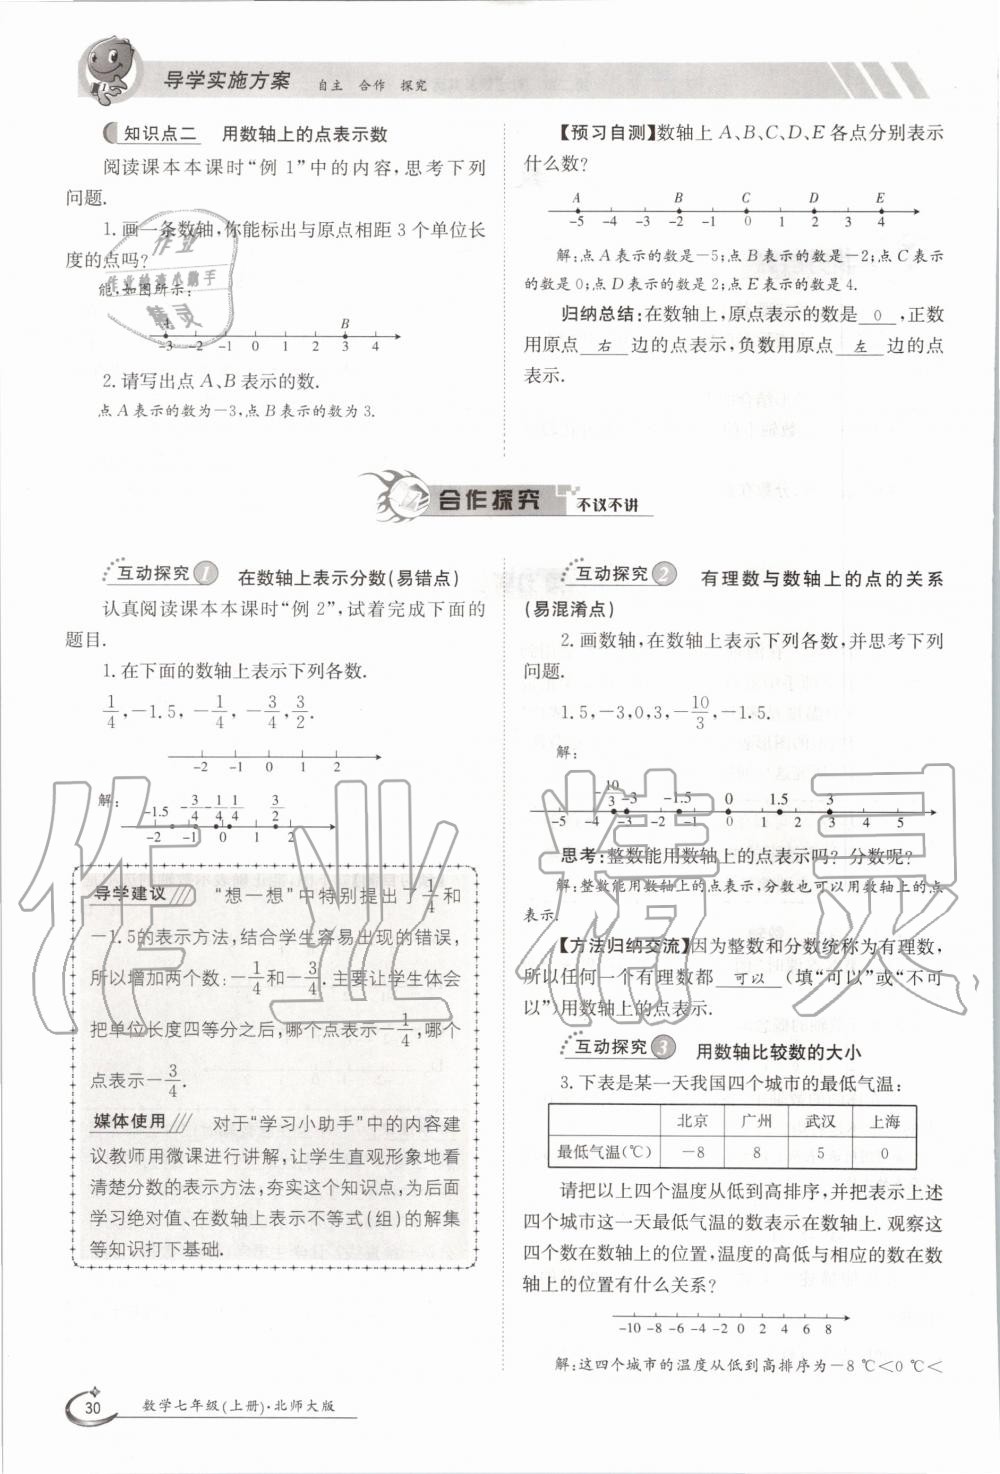 导学实施方案 自主 合作 探究
知识点二 用数轴上的点表示数
阅读课本本课时“例 1”中的内容,思考下列
问题.
1.画一条数轴,你能标出与原点相距 3 个单位长
度的点吗?
能,如图所示:
A B
-3 -2 -1 0 1 2 3 4
2.请写出点 A、B 表示的数.
点 A 表示的数为-3,点 B 表示的数为 3.
【预习自测】数轴上 A、B、C、D、E 各点分别表示
什么数?
A B C D E
-5 -4 -3 -2 -1 0 1 2 3 4
解:点 A 表示的数是-5;点 B 表示的数是-2;点 C 表示
的数是 0;点 D 表示的数是 2;点 E 表示的数是 4.
归纳总结:在数轴上,原点表示的数是 0 ,正数
用原点 右 边的点表示,负数用原点 左 边的点
表示.
合作探究 不议不讲
互动探究 1 在数轴上表示分数(易错点)
认真阅读课本本课时“例 2”,试着完成下面的
题目.
1.在下面的数轴上表示下列各数.
1/4,-1.5,-1/4,-3/4,3/2.
-2 -1 0 1 2
解:
-1.5 -3/4 -1/4 1/4 3/2
-2 -1 0 1 2
导学建议 “想一想”中特别提出了1/4和
-1.5的表示方法,结合学生容易出现的错误,
所以增加两个数:-1/4和-3/4.主要让学生体会
把单位长度四等分之后,哪个点表示-1/4,哪个
点表示-3/4.
媒体使用 对于“学习小助手”中的内容建
议教师用微课进行讲解,让学生直观形象地看
清楚分数的表示方法,夯实这个知识点,为后面
学习绝对值、在数轴上表示不等式(组)的解集
等知识打下基础.
互动探究 2 有理数与数轴上的点的关系
(易混淆点)
2.画数轴,在数轴上表示下列各数,并思考下列
问题.
1.5,-3,0,3,-10/3,-1.5.
解:
-10/3 -3 -1.5 0 1.5 3
-5 -4 -3 -2 -1 0 1 2 3 4 5
思考:整数能用数轴上的点表示吗?分数呢?
解:整数能用数轴上的点表示,分数也可以用数轴上的点
表示.
【方法归纳交流】因为整数和分数统称为有理数,
所以任何一个有理数都 可以 (填“可以”或“不可
以”)用数轴上的点表示.
互动探究 3 用数轴比较数的大小
3.下表是某一天我国四个城市的最低气温:
北京 广州 武汉 上海
最低气温(℃) -8 8 5 0
请把以上四个温度从低到高排序,并把表示上述
四个城市这一天最低气温的数表示在数轴上.观察这
四个数在数轴上的位置,温度的高低与相应的数在数
轴上的位置有什么关系?
-10 -8 -6 -4 -2 0 2 4 6 8
解:这四个城市的温度从低到高排序为-8 ℃<0 ℃<
30 数学七年级(上册)·北师大版
作业精灵
作业
作业快速小助手
精灵